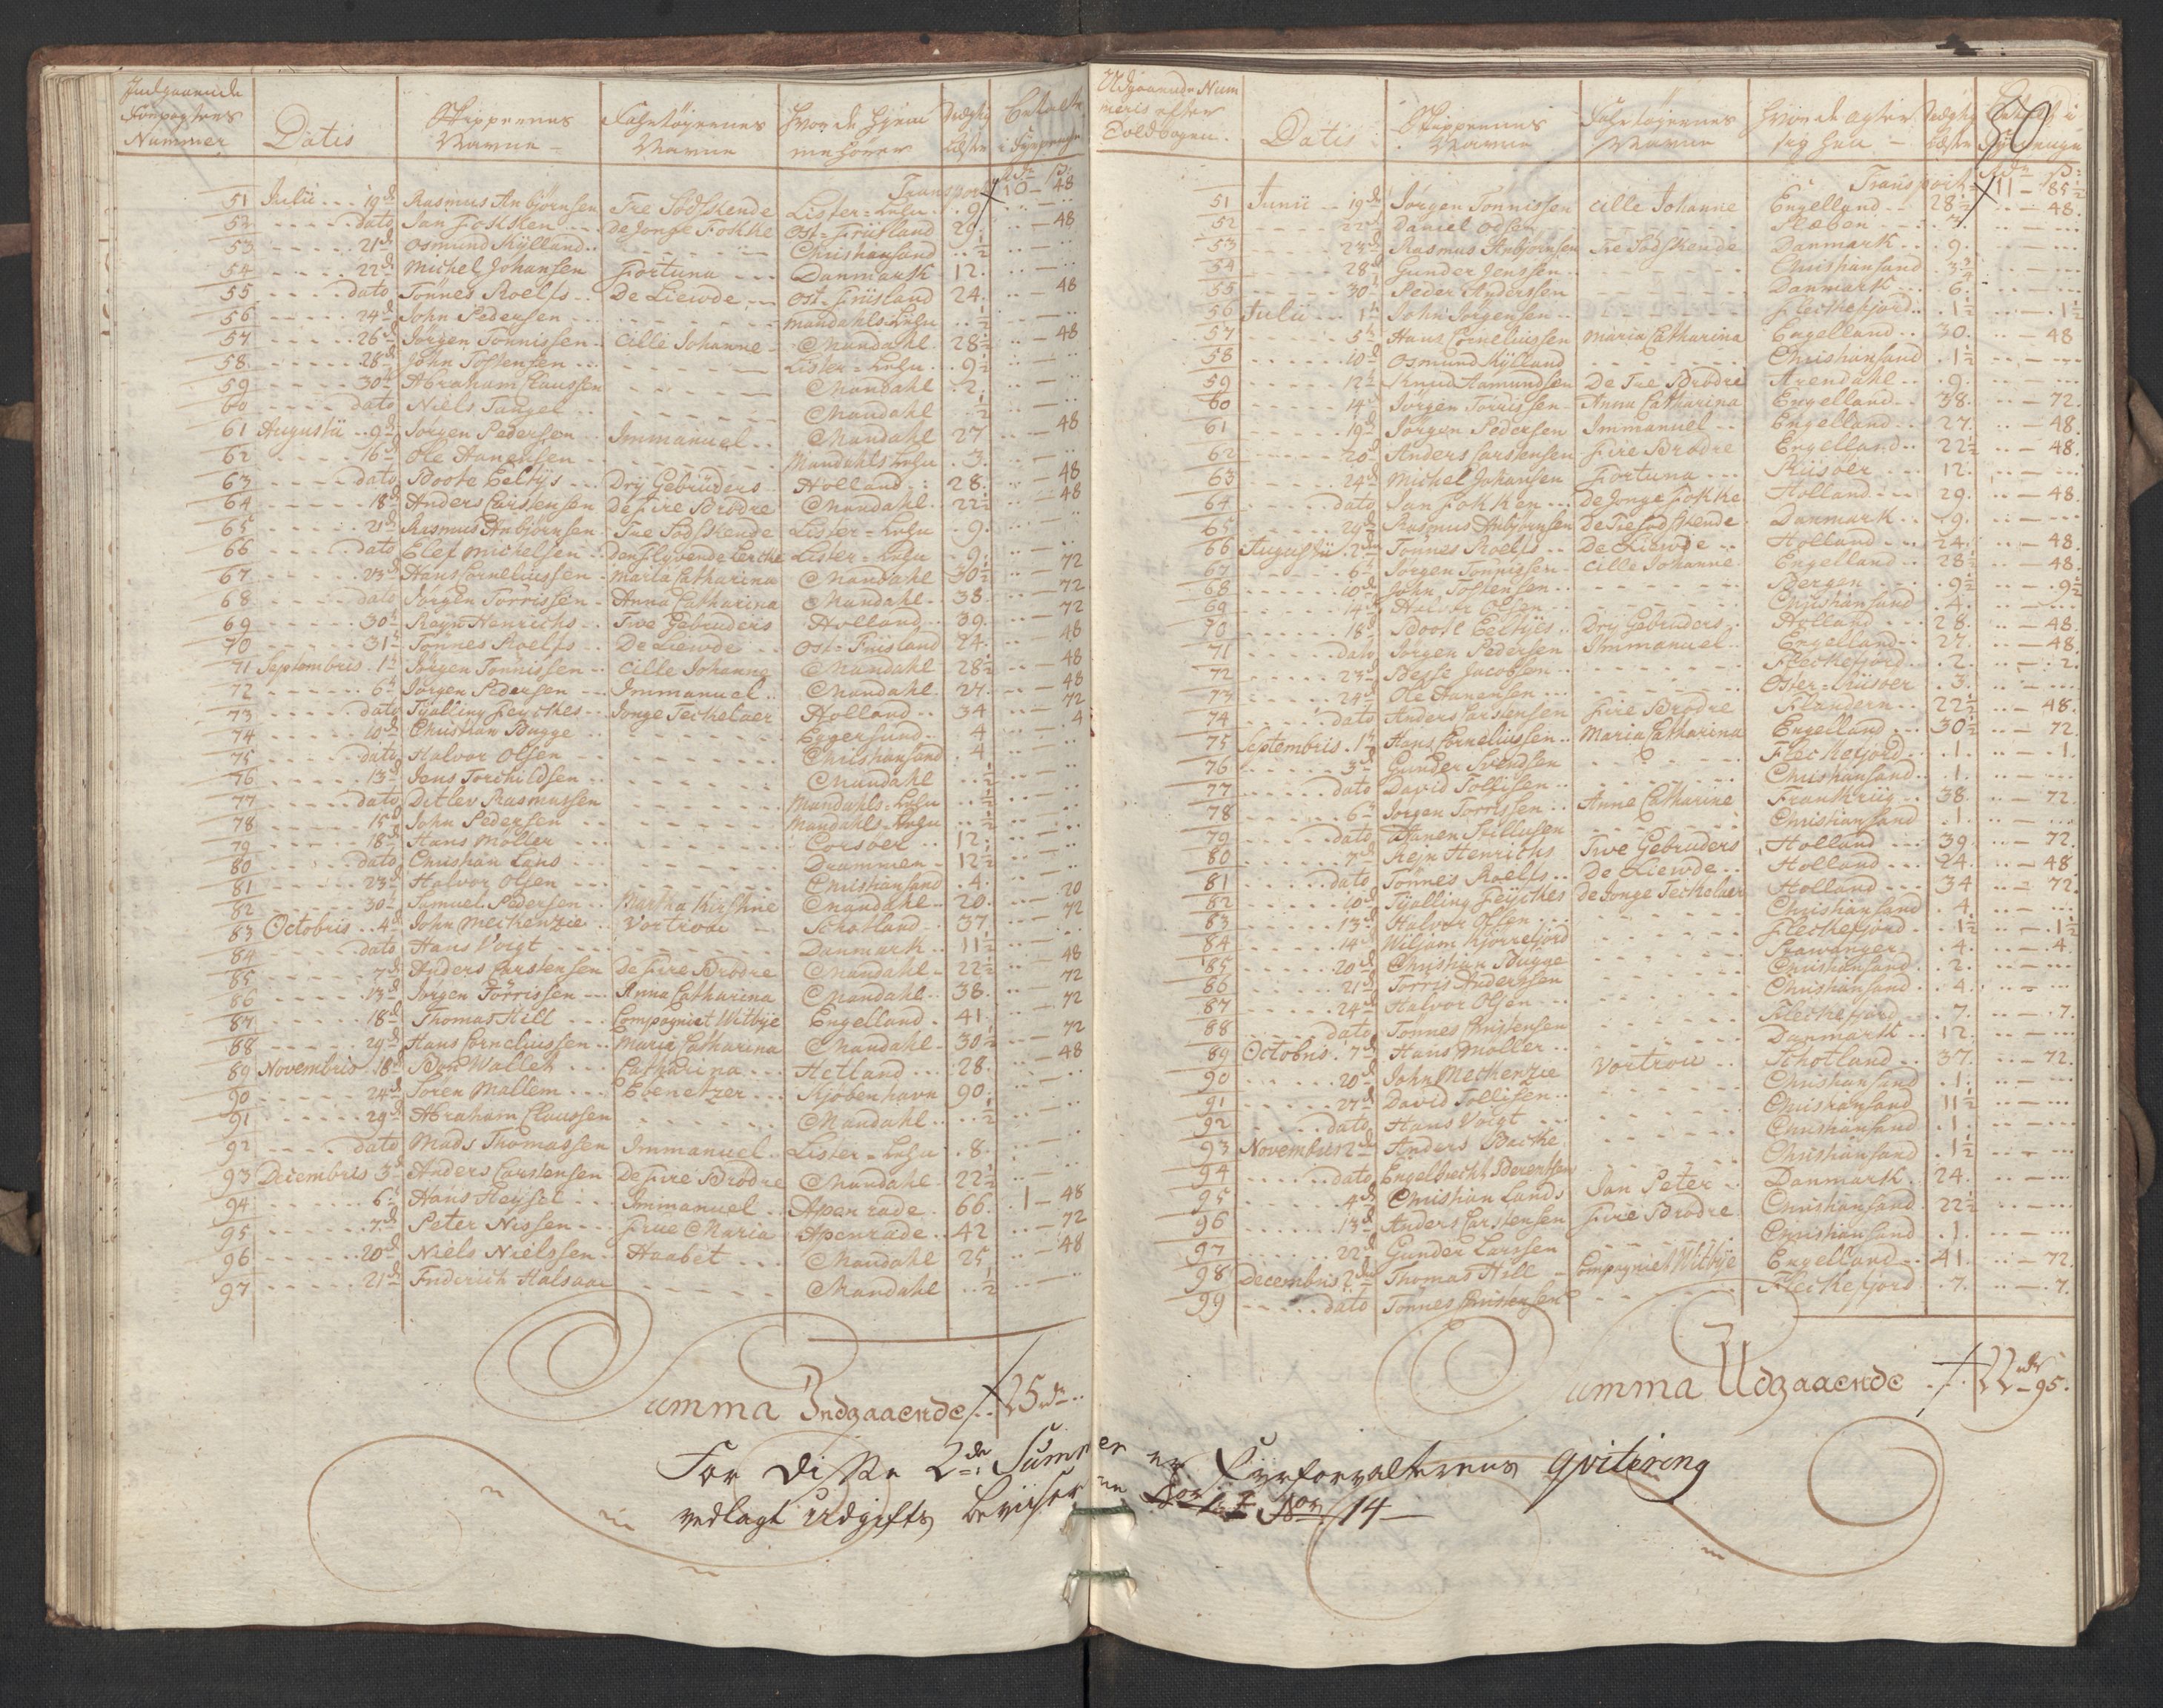 Indgaaende
Nummer
Datis
Skippernes Navne
Fahrtøyernes Navne
Hvor de hjem
Læster
Transport 10 - 48
51 Julii 19de Rasmus Anbjørnsen Tre Sødskende Lister-Lehn 9
52 dato Jan Fokken De Jonge Fokke Ost-Friisland 29 48
53 21de Osmund Kÿlland Christiansand ½
54 22de Michel Johansen Fortuna Danmark 12
55 dato Tönnes Roelfs De Liewde Ost-Friisland 24 48
56 24de John Pedersen Mandahls Lehn ½
57 26de Jørgen Tönnissen Cille Johanne Mandahl 28½ 48
58 28de John Tostensen Lister-Lehn 9½
59 30te Abraham Claussen Mandahl 2
60 dato Niels Tangel Mandahl ½
61 Augustii 9de Jørgen Pedersen Immanuel Mandahl 27 48
62 16de Ole Hanensen Mandahls Lehn 3
63 dato Boote Eeltÿs Drÿ Gebrüders Holland 28 48
64 18de Anders Carstensen De Fire Brødre Mandahl 22½ 48
65 21de Rasmus Anbjørnsen Tre Sødskende Lister-Lehn 9
66 dato Elef Michelsen Den Flyvende Lerche Lister-Lehn 9
67 23de Hans Corneliussen Maria Catharina Mandahl 30½ 72
68 dato Jørgen Torrissen Anna Catharina Mandahl 38 72
69 30te Reÿn Henrichs Twe Gebruders Holland 39 72
70 31te Tönnes Roelfs De Liewde Ost-Friisland 24 48
71 Septembris 1te Jørgen Tönnissen Cille Johanne Mandahl 28½ 48
72 6te Jørgen Pedersen Immanuel Mandahl 27 48
73 dato Tÿalling Feÿckes Jonge Teckelaer Holland 34 72
74 10de Christian Bugge Eggersund 4 4
75 dato Halvor Olsen Christiansand 4
76 13de Jens Torchildsen Mandahl ½
77 dato Ditlev Rasmussen Mandahls-Lehn ½
78 15de John Pedersen Mandahls-Lehn ½
79 18de Hans Möller Corsøer 12
80 dato Christian Lans Drammen 12½
81 23de Halvor Olsen Christiansand 4
82 30te Samuel Pedersen Martha Kirstine Mandahl 20 20
83 Octobris 4de John Meckenzie Vortrou Schotland 37 72
84 dato Hans Voigt Danmark 11½
85 7de Anders Carstensen De Fire Brødre Mandahl 22½ 48
86 13de Jørgen Törrissen Anna Catharina Mandahl 38 72
87 18de Thomas Hill Compagniet Witbÿe Engelland 41 72
88 29de Hans Corneliussen Maria Catharina Mandahl 30½ 72
89 Novembris 18de Ben Wallet Catharina Hetland 28 48
90 24de Søren Mallem Ebenetzer Kjøbenhavn 90
91 29de Abraham Claussen Mandahl ½
92 dato Mads Thomassen Immanuel Lister-Lehn 8
93 Decembris 3de Anders Carstensen De Fire Brødre Mandahl 22½
94 6te Hans Heÿsel Immanuel Apenrade 66 1 - 48
95 7de Peter Nissen Frue Maria Apenrade 42 72
96 20de Niels Nielssen Haabet Mandahl 25 48
97 21de Friderich Halsaar Mandahl ½
Summa Indgaaende 25 rdr
For disse 2de Summer er Fyrforvalterens Qvitering
vedlagt Udgifts
50
Udgaaende Num
meris efter
Toldbogen
Datis
Skippernes Navne
Fahrtøyernes Navne
Hvor de agter sig hen
Læster
Transport 11 - 85½
51 Junii 19de Jørgen Tönnissen Cille Johanne Engelland 28½ 48
52 22de Daniel Odsen Ræben 7
53 23de Rasmus Anbjørnsen Tre Sødskende Danmark 9
54 28de Gunder Jenssen Christiansand 3¾
55 30te Peder Anderssen Danmark 6
56 Julii 1te John Jørgensen Fleckefjord 1½ 1½
57 5te Hans Corneliussen Maria Catharina Engelland 30 48
58 10de Osmund Kÿlland Christiansand 1½
59 12te Knud Aamundsen De Tre Brødre Arendahl 9
60 14de Jørgen Törrissen Anna Catharina Engelland 38 72
61 19de Jørgen Pedersen Immanuel Engelland 27 48
62 20de Anders Carstensen Fire Brødre Engelland 22½ 48
63 24de Michel Johansen Fortuna Riisøer 12
64 dato Jan Fokken De Jonge Fokke Holland 29 48
65 29de Rasmus Anbjørnsen De Tre Sødskende Danmark 9
66 Augustii 2den Tönnes Roelfs De Liewde Holland 24 48
67 6te Jørgen Tönnissen Cille Johanne Engelland 28½ 48
68 10de John Tostensen Bergen 9½ 9½
69 14de Halvor Olsen Christiansand 4
70 18de Boote Eeltÿes Drÿ Gebruders Holland 28 48
71 dato Jørgen Pedersen Immanuel Engelland 27 48
72 23de Besse Jacobsen Fleckefjord 2 2
73 24de Ole Hanensen Oster-Riisøer 3
74 dato Anders Carstensen Fire Brødre Flandern 22½ 48
75 Septembris 1te Hans Corneliussen Maria Catharina Engelland 30½ 72
76 3de Gunder Svendsen Fleckefjord 1 1
77 dato David Tollisen Christiansand 1
78 6te Jørgen Torrissen Anne Catharine Frankriig 38 72
79 dato Hanen Tellusen Christiansand 1
80 7de Reÿn Henrichs Twe Gebruders Holland 39 72
81 dato Tönnes Roelfs De Liewde Holland 24 48
82 10de Tÿalling Feÿckes De Jonge Teckelaer Holland 34 72
83 13de Halvor Olsen Christiansand 4
84 14de Wiljam Kjørrefjord Fleckefjord 1½ 1½
85 20de Christian Bugge Stawanger 4 4
86 21de Torris Anderssen Christiansand 2
87 24de Halvor Olsen Christiansand 4
88 dato Tönnes Christensen Fleckefiord 7 7
89 Octobris 7de Hans Møller Danmark 12
90 20de John Meckenzie Vortrou Schotland 37 72
91 27de David Tollisen Christiansand 1
92 dato Hans Voigt Christiansand 11½
93 Novembris 2den Anders Backe Christiansand 1
94 dato Engelbrecht Berentsen Christiansand 1½
95 4de Christian Lands Jan Peter Danmark 24
96 13de Anders Carstensen Fire Brødre Christiansand 22½
97 22de Gunder Larssen Christiansand 1
98 Decembris 2den Thomas Hill Compagniet Witbÿe Engelland 41 72
99 dato Tönnes Christensen Fleckefjord 7 7
Summa Udgaaende 22 rdr 95
14